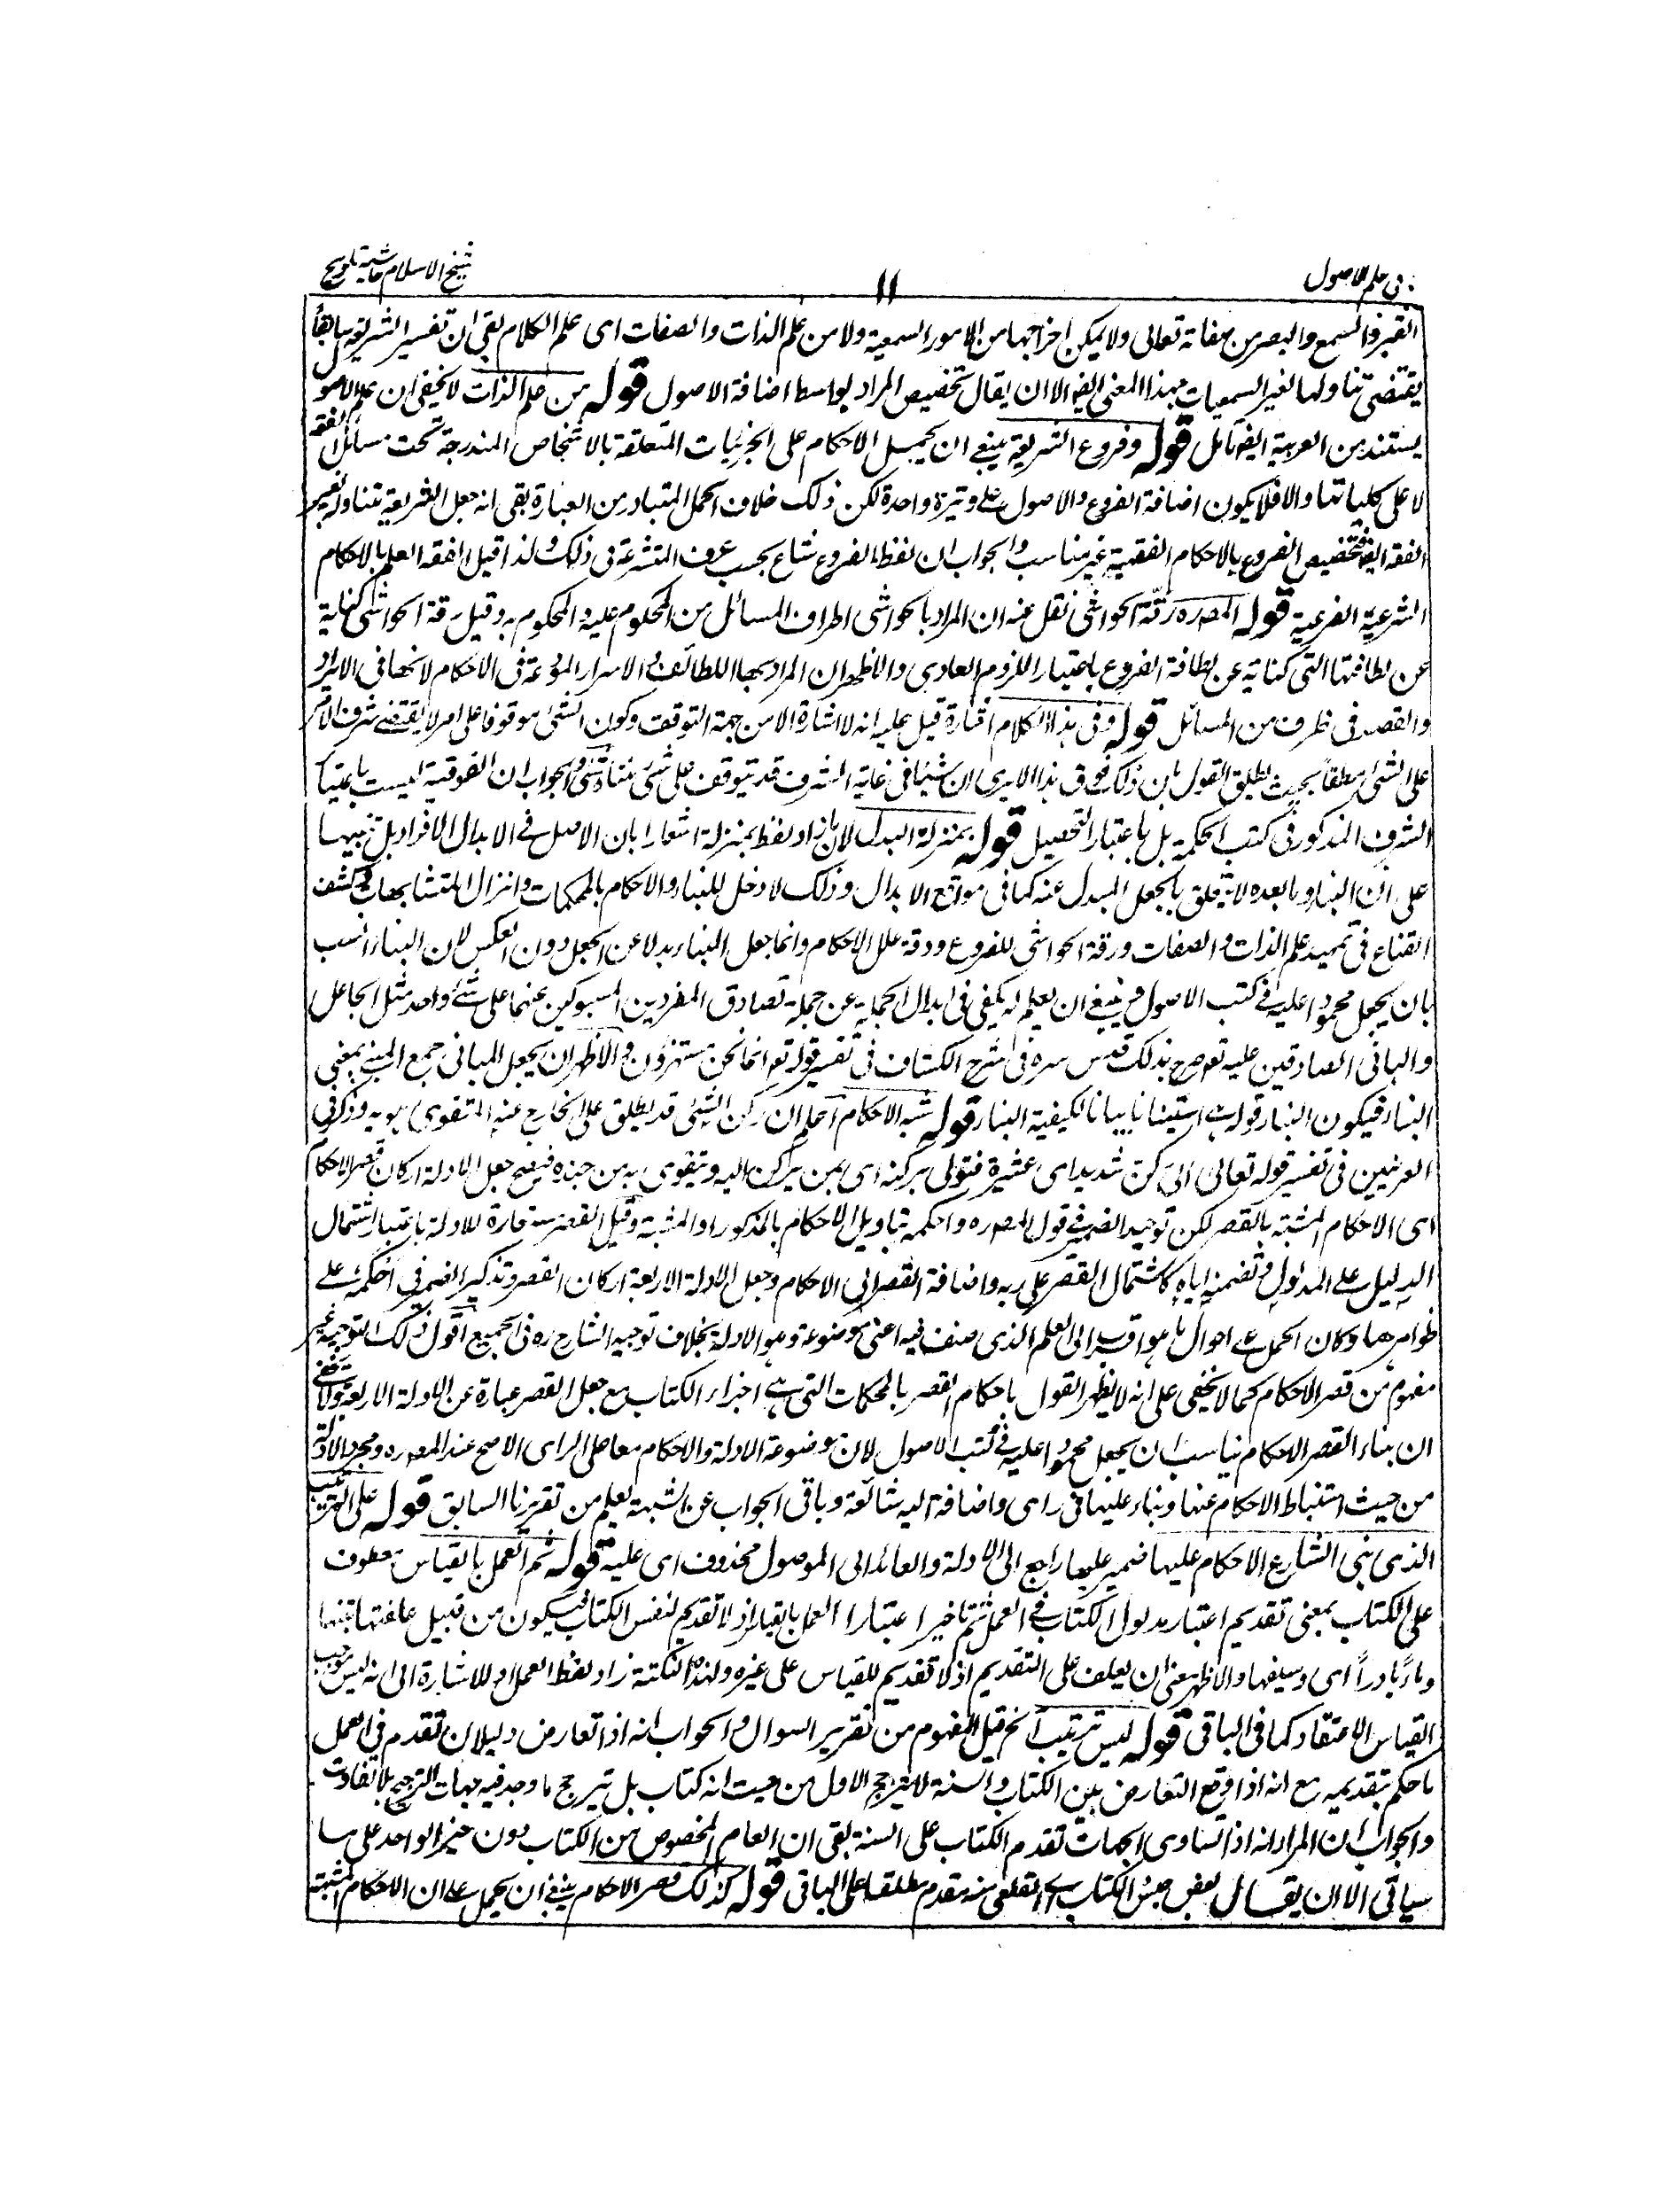 في علم الاصول
١١
شيخ الاسلام حاشية تلويح
القبر والسمع والبصر من صفاته تعالى ولا يمكن اخراجها من الامور السمعية ولا من علم الذات والصفات اى علم الكلام بقى ان تفسير الشريعة
يقتضى تناولها لغير السمعيات بهذا المعنى ايضا الا ان يقال تخصيص المراد بواسطة اضافة الاصول قوله من علم الذات لا يخفى ان علم الاصول
يستند من العربية ايضا تأمل قوله وفروع الشريعة ينبغى ان يحمل الاحكام على الجزئيات المتعلقة بالاشخاص المندرجة تحت مسائل الفقه
لا على كلياتها والا فلا يكون اضافة الفروع والاصول على وتيرة واحدة لكن ذلك خلاف الحمل المتبادر من العبارة بقى انه جعل الشريعة متناولة لغير
الفقه ايضا فتخصيص الفروع بالاحكام الفقهية غير مناسب والجواب ان لفظ الفروع شاع بحسب عرف المتشرعة فى ذلك ولذا قيل الفقه العلم بالاحكام
الشرعية الفرعية قوله المصره رقة الحواشى نقل عنه ان المراد بالحواشى اطراف المسائل من المحكوم عليه والمحكوم به وقيل رقة الحواشى كناية
عن لطافتها التى كناية عن لطافة الفروع باعتبار اللزوم العادى والاظهر ان المراد بها اللطائف والاسرار المودعة فى الاحكام لانها فى الايراد
والقصد فى طرف من المسائل قوله وفى هذا الكلام اشارة قيل عليه انه لا اشارة الا من جهة التوقف وكون الشئ موقوفا على امر لا يقتضى شرف الامر
على الشئ مطلقا بحيث يطلق القول بان ذلك فوق هذا الا يرى ان شيئا فى غاية الشرف قد يتوقف على شئ والجواب ان الفوقية ليست باعتبار
الشرف المذكور فى كتب الحكمة بل باعتبار التحصيل قوله بمنزلة البدل لان ازاد لفظ بمنزلة اشعارا بان الاصل فى الابدال الافراد بل تنبيها
على ان البناء وما بعده لا يتعلق بالجعل المبدل عنه كما فى مواقع الابدال وذلك لا دخل للبناء والاحكام بالمحكمات وانزال المتشابهات وكشف
القناع فى تمهيد علم الذات والصفات ورقة الحواشى للفروع ودقة علل الاحكام وانما جعل البناء بدلا عن الجعل دون العكس لان البناء انسب
بان يجعل محمودا عليه فى كتب الاصول ثم ينبغى ان يعلم انه يكفى فى ابدال الجملة عن جملة تصادق المفردين المسبوكين عنهما على شئ واحد مثل الجاعل
والبانى الصادقين عليه تعالى صرح بذلك قدس سره فى شرح الكشاف فى تفسير قوله تعالى انما نحن مستهزؤن والاظهر ان يجعل المبانى جمع المبنى بمعنى
البناء فيكون البناء قوله بنى استينافا بيانا لكيفية البناء قوله شبه الاحكام اعلم ان ركن الشئ قد يطلق على الخارج عنه المتقوى هو به وذكر فى
العرنيين فى تفسير قوله تعالى الى ركن شديد اى عشيرة فتولى بركنه اى بمن يركن اليه ويتقوى به من جنده فيصح جعل الادلة اركان قصر الاحكام
اى الاحكام المشبه بالقصر لكن توحيد الضمير فى قول المصره واحكمه بتاويل الاحكام بالمذكور او المشبه وقيل القصر مستعارة للادلة باعتبار اشتمال
الدليل على المدلول وتضمنه اياه كاشتمال القصر على ربه واضافة القصر الى الاحكام وجعل الادلة الاربعة اركان القصر وتذكير الضمير فى احكمه على
ظواهرها وكان الحمل على احوال ما هو اقرب الى العلم الذى صنف فيه اعنى موضوعه وهو الادلة بخلاف توجيه الشارح ره فى الجميع اقول ذلك التوجيه غير
مفهوم من قصر الاحكام كما لا يخفى على انه لا يظهر القول باحكام القصر بالمحكمات التى هى اجزاء الكتاب مع جعل القصر عبارة عن الادلة الاربعة ولا يخفى
ان بناء القصر الاحكام يناسب ان يجعل محمودا عليه فى كتب الاصول لان موضوعه الادلة والاحكام معا على الراى الاصح عند المصره ومجرد الادلة
من حيث استنباط الاحكام عنها وبناء عليها فى راى واضافة اليه شائعة وباقى الجواب عن الشبهة يعلم من تقريرنا السابق قوله على الترتيب
الذى بنى الشارع الاحكام عليها ضمير عليها راجع الى الادلة والعائد الى الموصول محذوف اى عليه قوله ثم العمل بالقياس معطوف
على الكتاب بمعنى تقديم اعتبار مدلول الكتاب فى العمل ثم تاخير اعتبار العمل بالقياس اذ لا تقديم لنفس الكتاب فيكون من قبيل علفتها تبنا
وماء باردا اى وسقيتها والاظهر معنى ان يعطف على التقديم اذ لا تقديم للقياس على غيره ولهذه النكتة زاد لفظ العمل او للاشارة الى انه ليس موجب
القياس الاعتقاد كما فى الباقى قوله ليس ترتيب الخ قيل المفهوم من تقرير السوال والجواب انه اذا تعارض دليلان تقدم فى العمل
ما حكم بتقديمه مع انه اذا وقع التعارض بين الكتاب والسنة لا يترجح الاول من حيث انه كتاب بل يترجح ما وجد فيه جهات الترجيح بلا تفاوت
والجواب ان المراد انه اذا تساوى الجهات تقدم الكتاب على السنة بقى ان العام المخصوص من الكتاب دون خبر الواحد على ما
سياتى الا ان يقال بعض جنس الكتاب اى القطعى منه مقدم مطلقا على الباقى قوله كذلك قصر الاحكام ينبغى ان يحمل على ان الاحكام المشبه